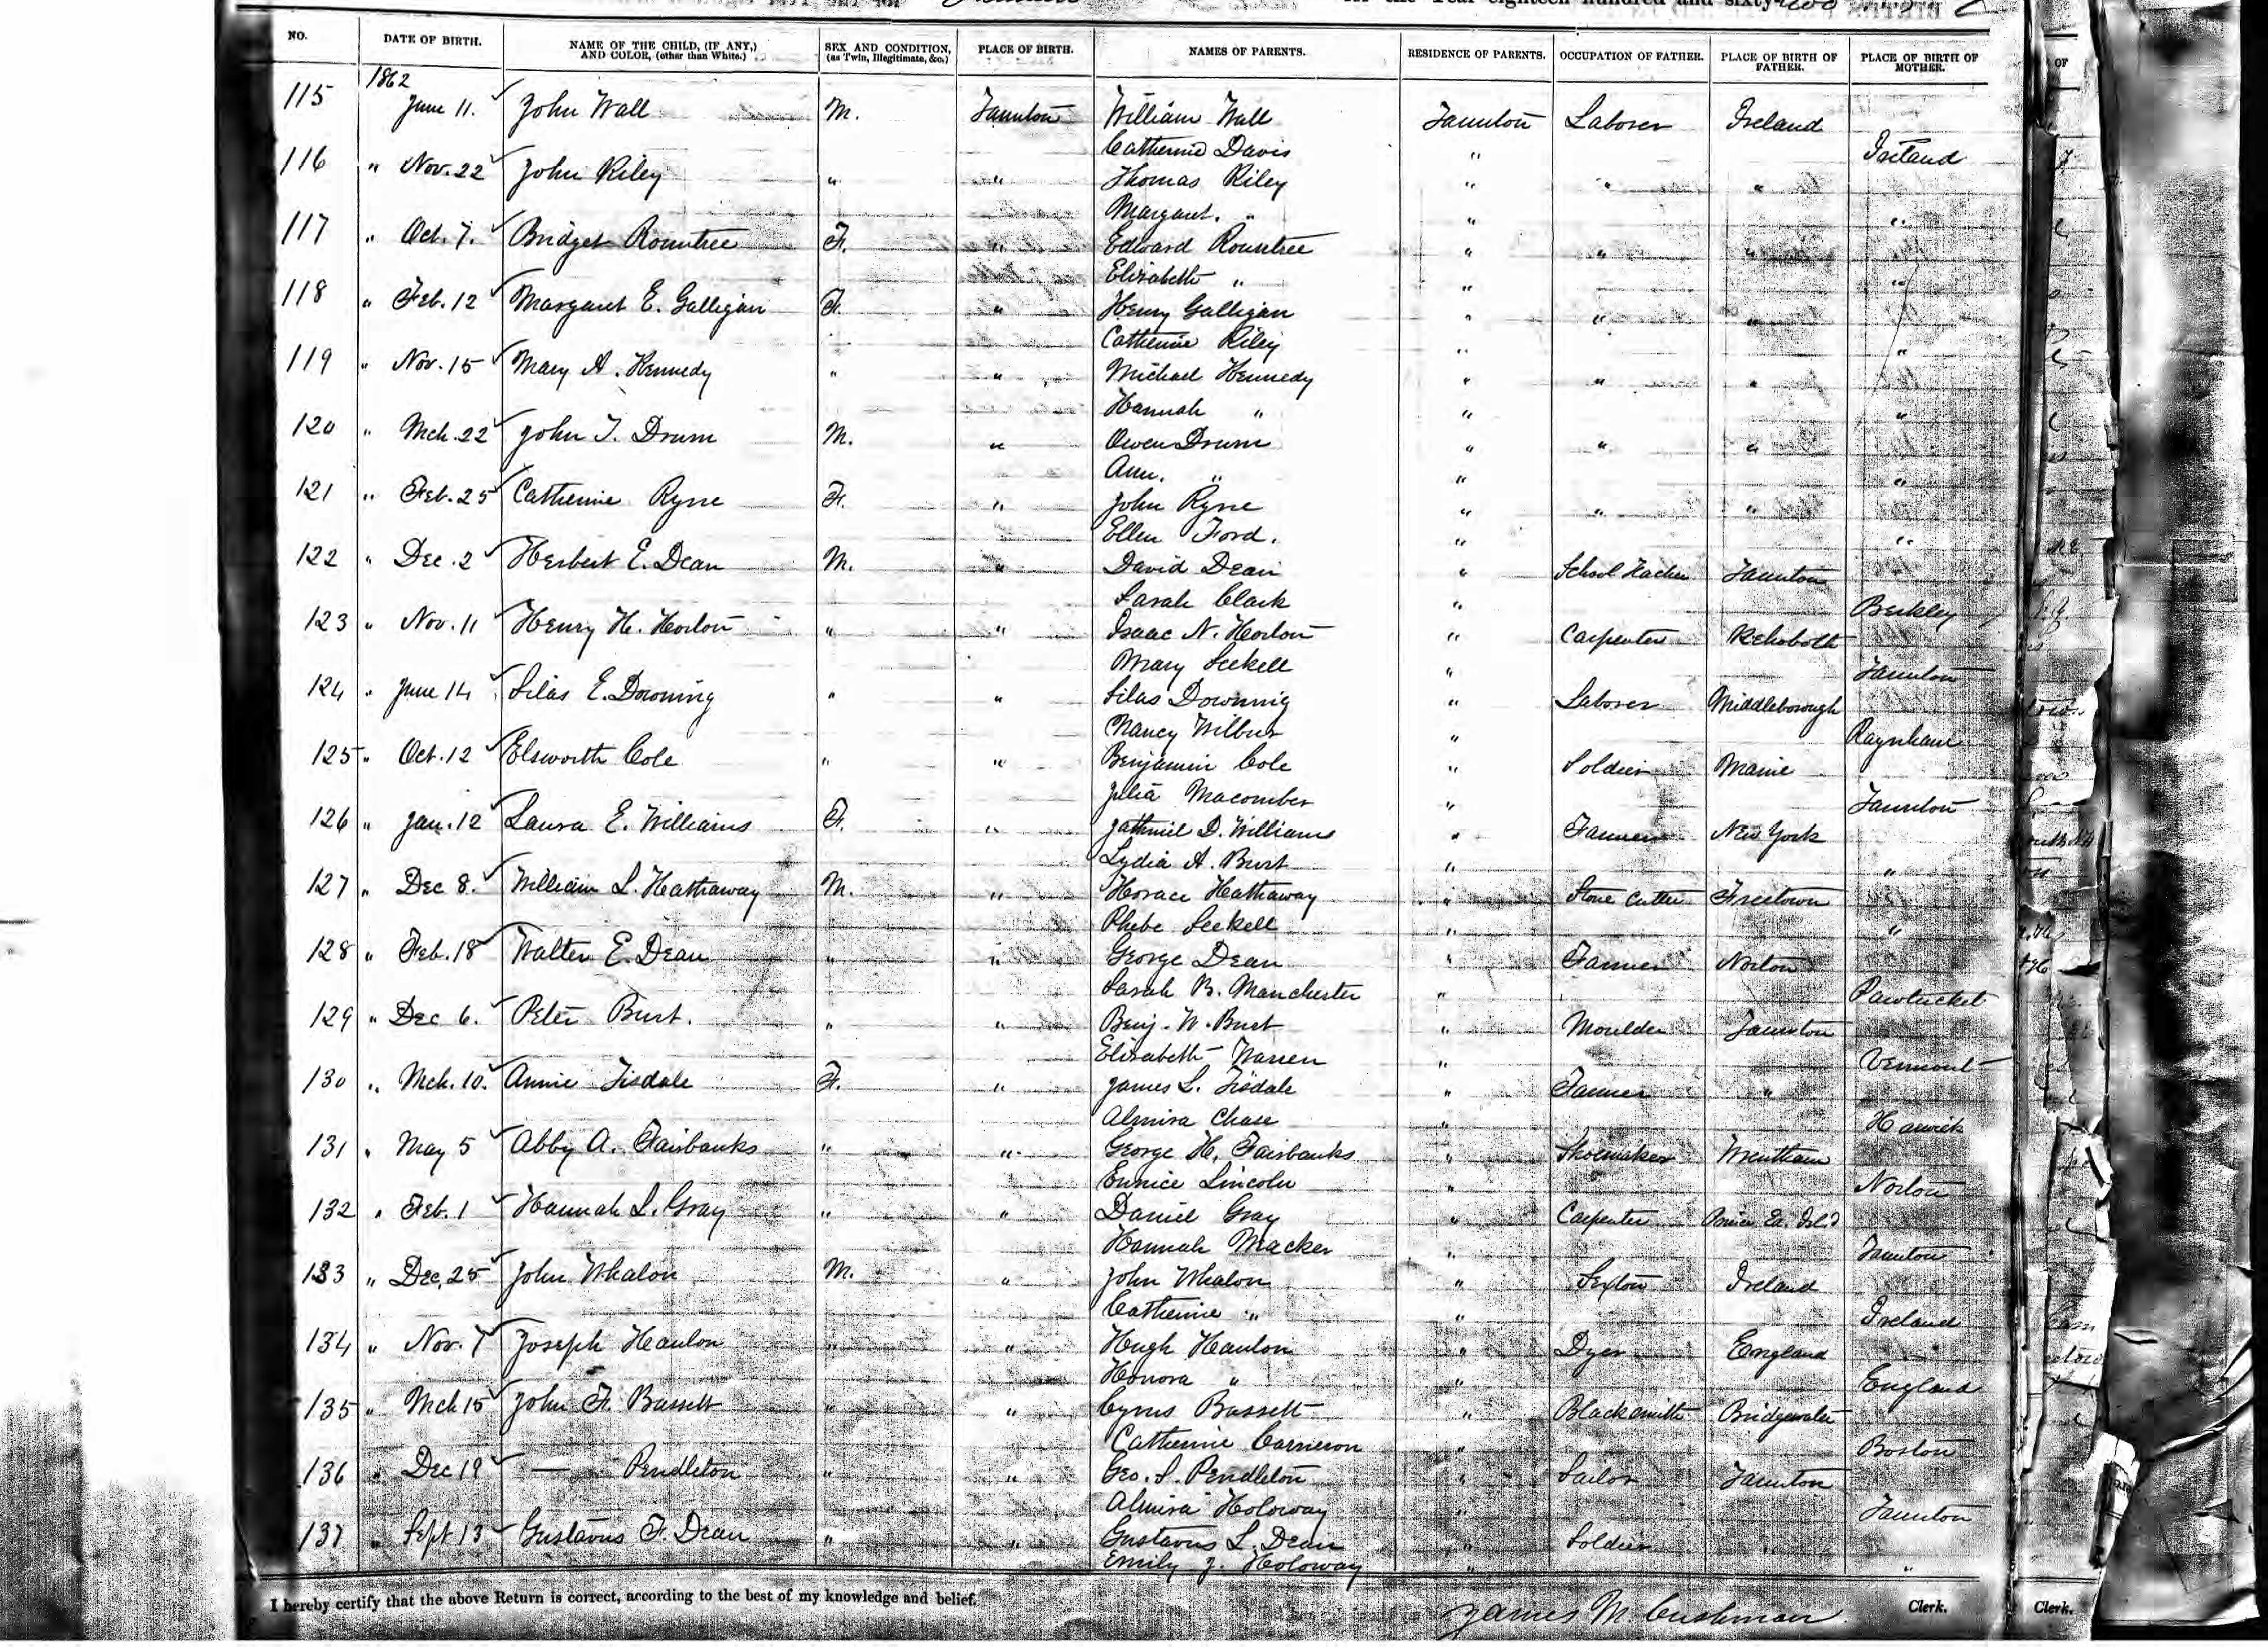 in the Year eighteen hundred and sixty-two
NO. DATE OF BIRTH. NAME OF THE CHILD, (IF ANY,) AND COLOR, (other than White.) SEX AND CONDITION, (as Twin, Illegitimate, &c.) PLACE OF BIRTH. NAMES OF PARENTS. RESIDENCE OF PARENTS. OCCUPATION OF FATHER. PLACE OF BIRTH OF FATHER. PLACE OF BIRTH OF MOTHER.
1862
115 June 11. John Wall M. Taunton William Wall Taunton Laborer Ireland
Catherine Davis " Ireland
116 " Nov. 22 John Riley " " Thomas Riley " " "
Margaret. " " "
117 " Oct. 7. Bridget Rountree F. " Edward Rountree " " "
Elizabeth " " "
118 " Feb. 12 Margaret E. Galligan F. " Henry Galligan " " "
Catherine Riley " "
119 " Nov. 15 Mary A. Kennedy " " Michael Kennedy " " "
Hannah " " "
120 " Mch. 22 John T. Drum M. " Owen Drum " " "
Ann. " " "
121 " Feb. 25 Catherine Ryne F. " John Ryne " " "
Ellen Ford. " "
122 " Dec. 2 Herbert E. Dean M. " David Dean " School Teacher Taunton
Sarah Clark " Berkley
123 " Nov. 11 Henry H. Horton " " Isaac N. Horton " Carpenter Rehoboth
Mary Seekell " Taunton
124 " June 14 Silas E. Downing " " Silas Downing " Laborer Middleborough
Nancy Wilbur " Raynham
125 " Oct. 12 Elsworth Cole " " Benjamin Cole " Soldier Maine
Julia Macomber " Taunton
126 " Jan. 12 Laura E. Williams F. " Jathniel D. Williams " Farmer New York
Lydia A. Burt " "
127 " Dec 8. William L. Hathaway M. " Horace Hathaway " Stone Cutter Freetown
Phebe Seekell " "
128 " Feb. 18 Walter E. Dean " " George Dean " Farmer Norton
Sarah B. Manchester " Pawtucket
129 " Dec 6. Peter Burt. " " Benj. W. Burt " Moulder Taunton
Elizabeth Warren " Vermont
130 " Mch. 10. Annie Tisdale F. " James L. Tisdale " Farmer "
Almira Chase " Harwich
131 " May 5 Abby A. Fairbanks " " George H. Fairbanks " Shoemaker Wrentham
Eunice Lincoln " Norton
132 " Feb. 1 Hannah L. Gray " " Daniel Gray " Carpenter Prince Ed. Isl.d
Hannah Macker " Taunton
133 " Dec. 25 John Whalon M. " John Whalon " Sexton Ireland
Catherine " " Ireland
134 " Nov. 7 Joseph Hanlon " " Hugh Hanlon " Dyer England
Honora " " England
135 " Mch 15 John F. Bassett " " Cyrus Bassett " Blacksmith Bridgewater
Catherine Carneron " Boston
136 " Dec 19 — Pendleton " " Geo. S. Pendleton " Sailor Taunton
Almira Holoway " Taunton
137 " Sept 13 Gustavus F. Dean " " Gustavus L. Dean " Soldier "
Emily J. Holoway " "
I hereby certify that the above Return is correct, according to the best of my knowledge and belief.
James M. Cushman. Clerk.
Clerk.